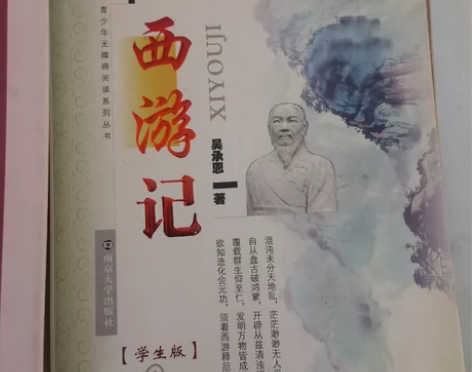 青少年无障碍阅读系列丛书
西游记
XIYOUJI
吴承恩 著
混沌未分天地乱，茫茫渺渺无人
自从盘古破鸿蒙，开辟从兹清浊
覆载群生仰至仁，发明万物皆成
欲知造化会元功，须看西游释厄
南京大学出版社
【学生版】